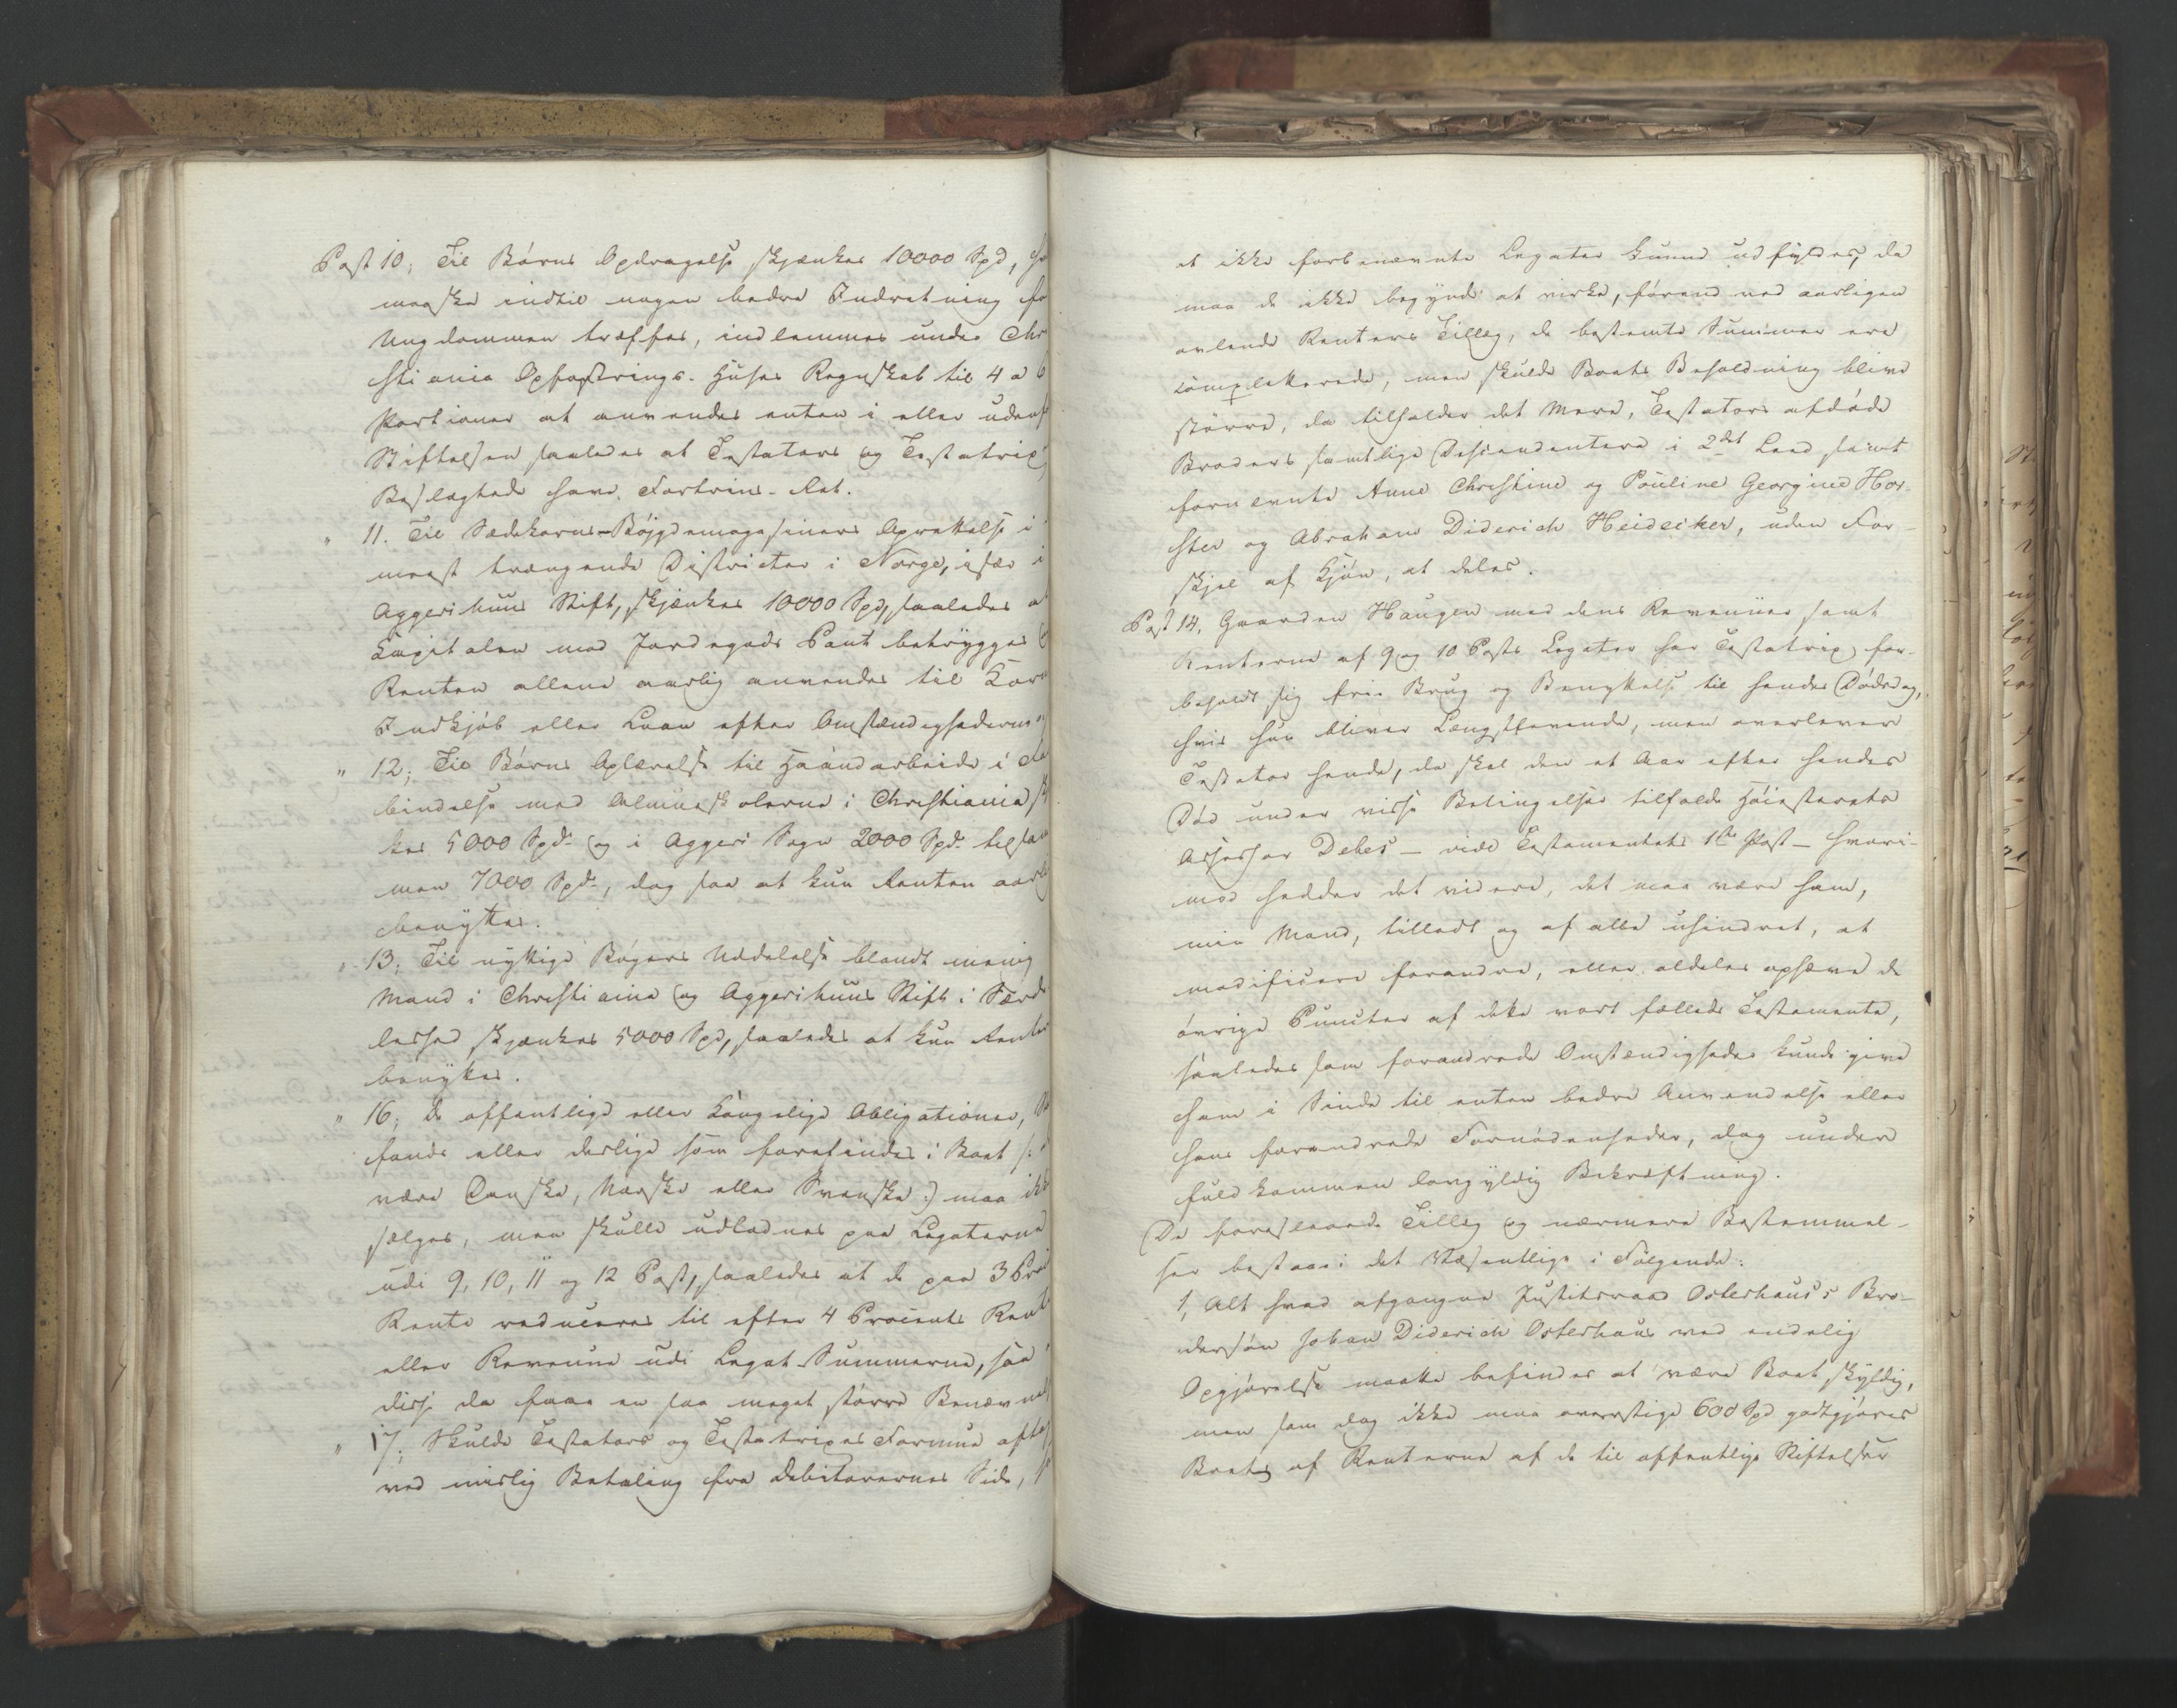 Post 10, Til Børns Opdragelse skjænkes 10000 Spd,
maaske indtil nogen bedre Indretning for
Ungdommen træffes, indlemmes under Chri
stiania Opfostrings-Huses Regnskab til 4 a 6
Portioner at anvendes enten i eller udenfor
Stiftelsen saaledes at Testators og Testatrix
Beslægtede have Fortrins-Ret.
" 11. Til Sædekorns-Bøjgdemagasiners Oprettelse i
meest trængende Districter i Norge, især i
Aggershuus Stift, skjænkes 10000 Spd, saaledes at
Capitalen mod Jordegods Pant betrygges og
Renten allene aarlig anvendes til Korn
Indkjøb eller Laan efter Omstændighederne
" 12, Til Børns Oplærelse til Haandarbeide i
bindelse med Almueskolerne i Christiania
kes 5000 Spd. og i Aggers Sogn 2000 Spd. tilsam
men 7000 Spd., dog saa at kun Renten aarlig
benyttes.
" 13, Til nyttige Bøgers Uddelelse blandt menig
Mand i Christiania og Aggershuus Stift i Særde
leshed skjænkes 5000 Spd, saaledes at kun Renten
benyttes.
" 16, De offentlige eller Kongelige Obligationer,
fonds eller deslige som forefindes i Boet
være Danske, Norske eller Svenske:) maa ikke
sælges, men skulle udlodnes paa Legaterne
udi 9, 10, 11 og 12 Post, saaledes at de paa 3 Pro
Rente reduceres til efter 4 Procents Rente
eller Revenue udi Legat-Summerne, saa
disse da faae en saa meget større Benævnelse
" 17, Skulde Testators og Testatrixes Formue
ved mislig Betaling fra Debitorernes Side,
at ikke forbenævnte Legater kunne udfyldes, da
maa de ikke begynde at virke, førend ved aarligen
avlende Renters Tillæg, de bestemte Summer ere
completterede, men skulde Boets Beholdning blive
større, da tilfalder det Mere, Testators afdøde
Broders samtlige Descendentere i 2det Leed samt
fornevnte Anne Christine og Pouline Georgine Hor-
ster og Abraham Diderich Heidecker, uden For-
skjel af Kjøn, at deles.
Post 14, Gaarden Haugen med dens Revenüer samt
Renterne af 9 og 10 Posts Legater har Testatrix for-
beholdt sig frie Brug og Benyttelse til hendes Dødsdag,
hvis hun bliver Længstlevende, men overlever
Testator hende, da skal den et Aar efter hendes
Død under visse Betingelser tilfalde Høiesterets
Assessor Debes – vide Testamentets 1te Post – hvori-
mod hedder det videre, det maa være ham,
min Mand, tilladt og af alle uhindret, at
modificere forandre, eller aldeles ophæve de
øvrige Puncter af dette vort fælleds Testamente,
saaledes som forandrede Omstændigheder kunde give
ham i Sinde til enten bedre Anvendelse eller
hans forandrede Fornødenheder, dog under
fuldkommen lovgyldig Bekræftning.
De foreslaaede Tillæg og nærmere Bestemmel-
ser bestaae i det Væsentlige i Følgende:
1, Alt hvad afgangne Justitsraad Osterhaus's Bro-
dersøn Johan Diderich Osterhaus ved endelig
Opgjørelse maatte befindes at være Boet skyldig,
men som dog ikke maa overstige 600 Spd godtgjøres
Boet af Renterne af de til offentlige Stiftelser